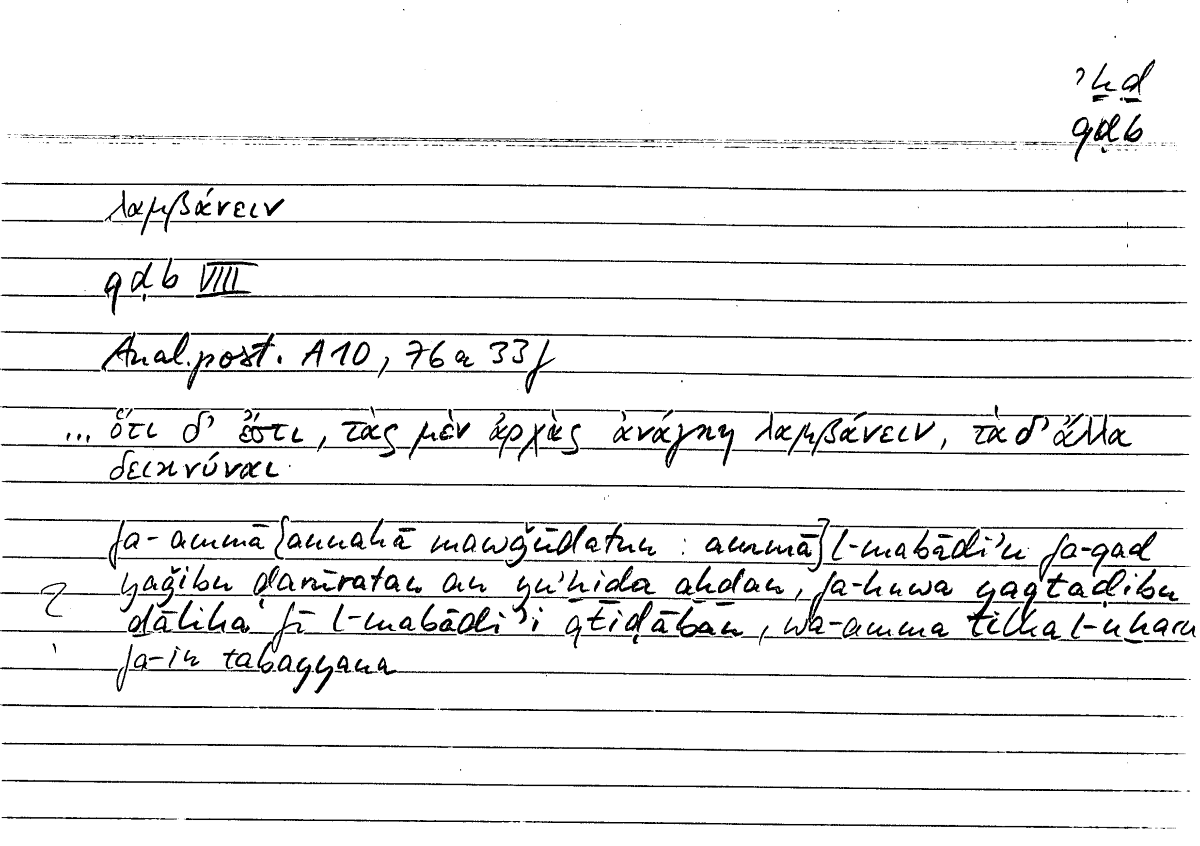 ʾḫḏ
qḍb
λαμβάνειν
qḍb VIII
Anal. post. A 10, 76 a 33 f
... ὅτι δ' ἔστι, τὰς μὲν ἀρχὰς ἀνάγκη λαμβάνειν, τὰ δ' ἄλλα
δεικνύναι.
fa-ammā {annahā mawǧūdatun : ammā} l-mabādiʾu fa-qad
yaǧibu ḍarūratan an yuʾḫiḏa aḫḏan, fa-huwa yaqtaḍibu
ḏālika fī l-mabādiʾi qtiḍāban, wa-amma tilka l-uḫaru
fa-in tabayyana